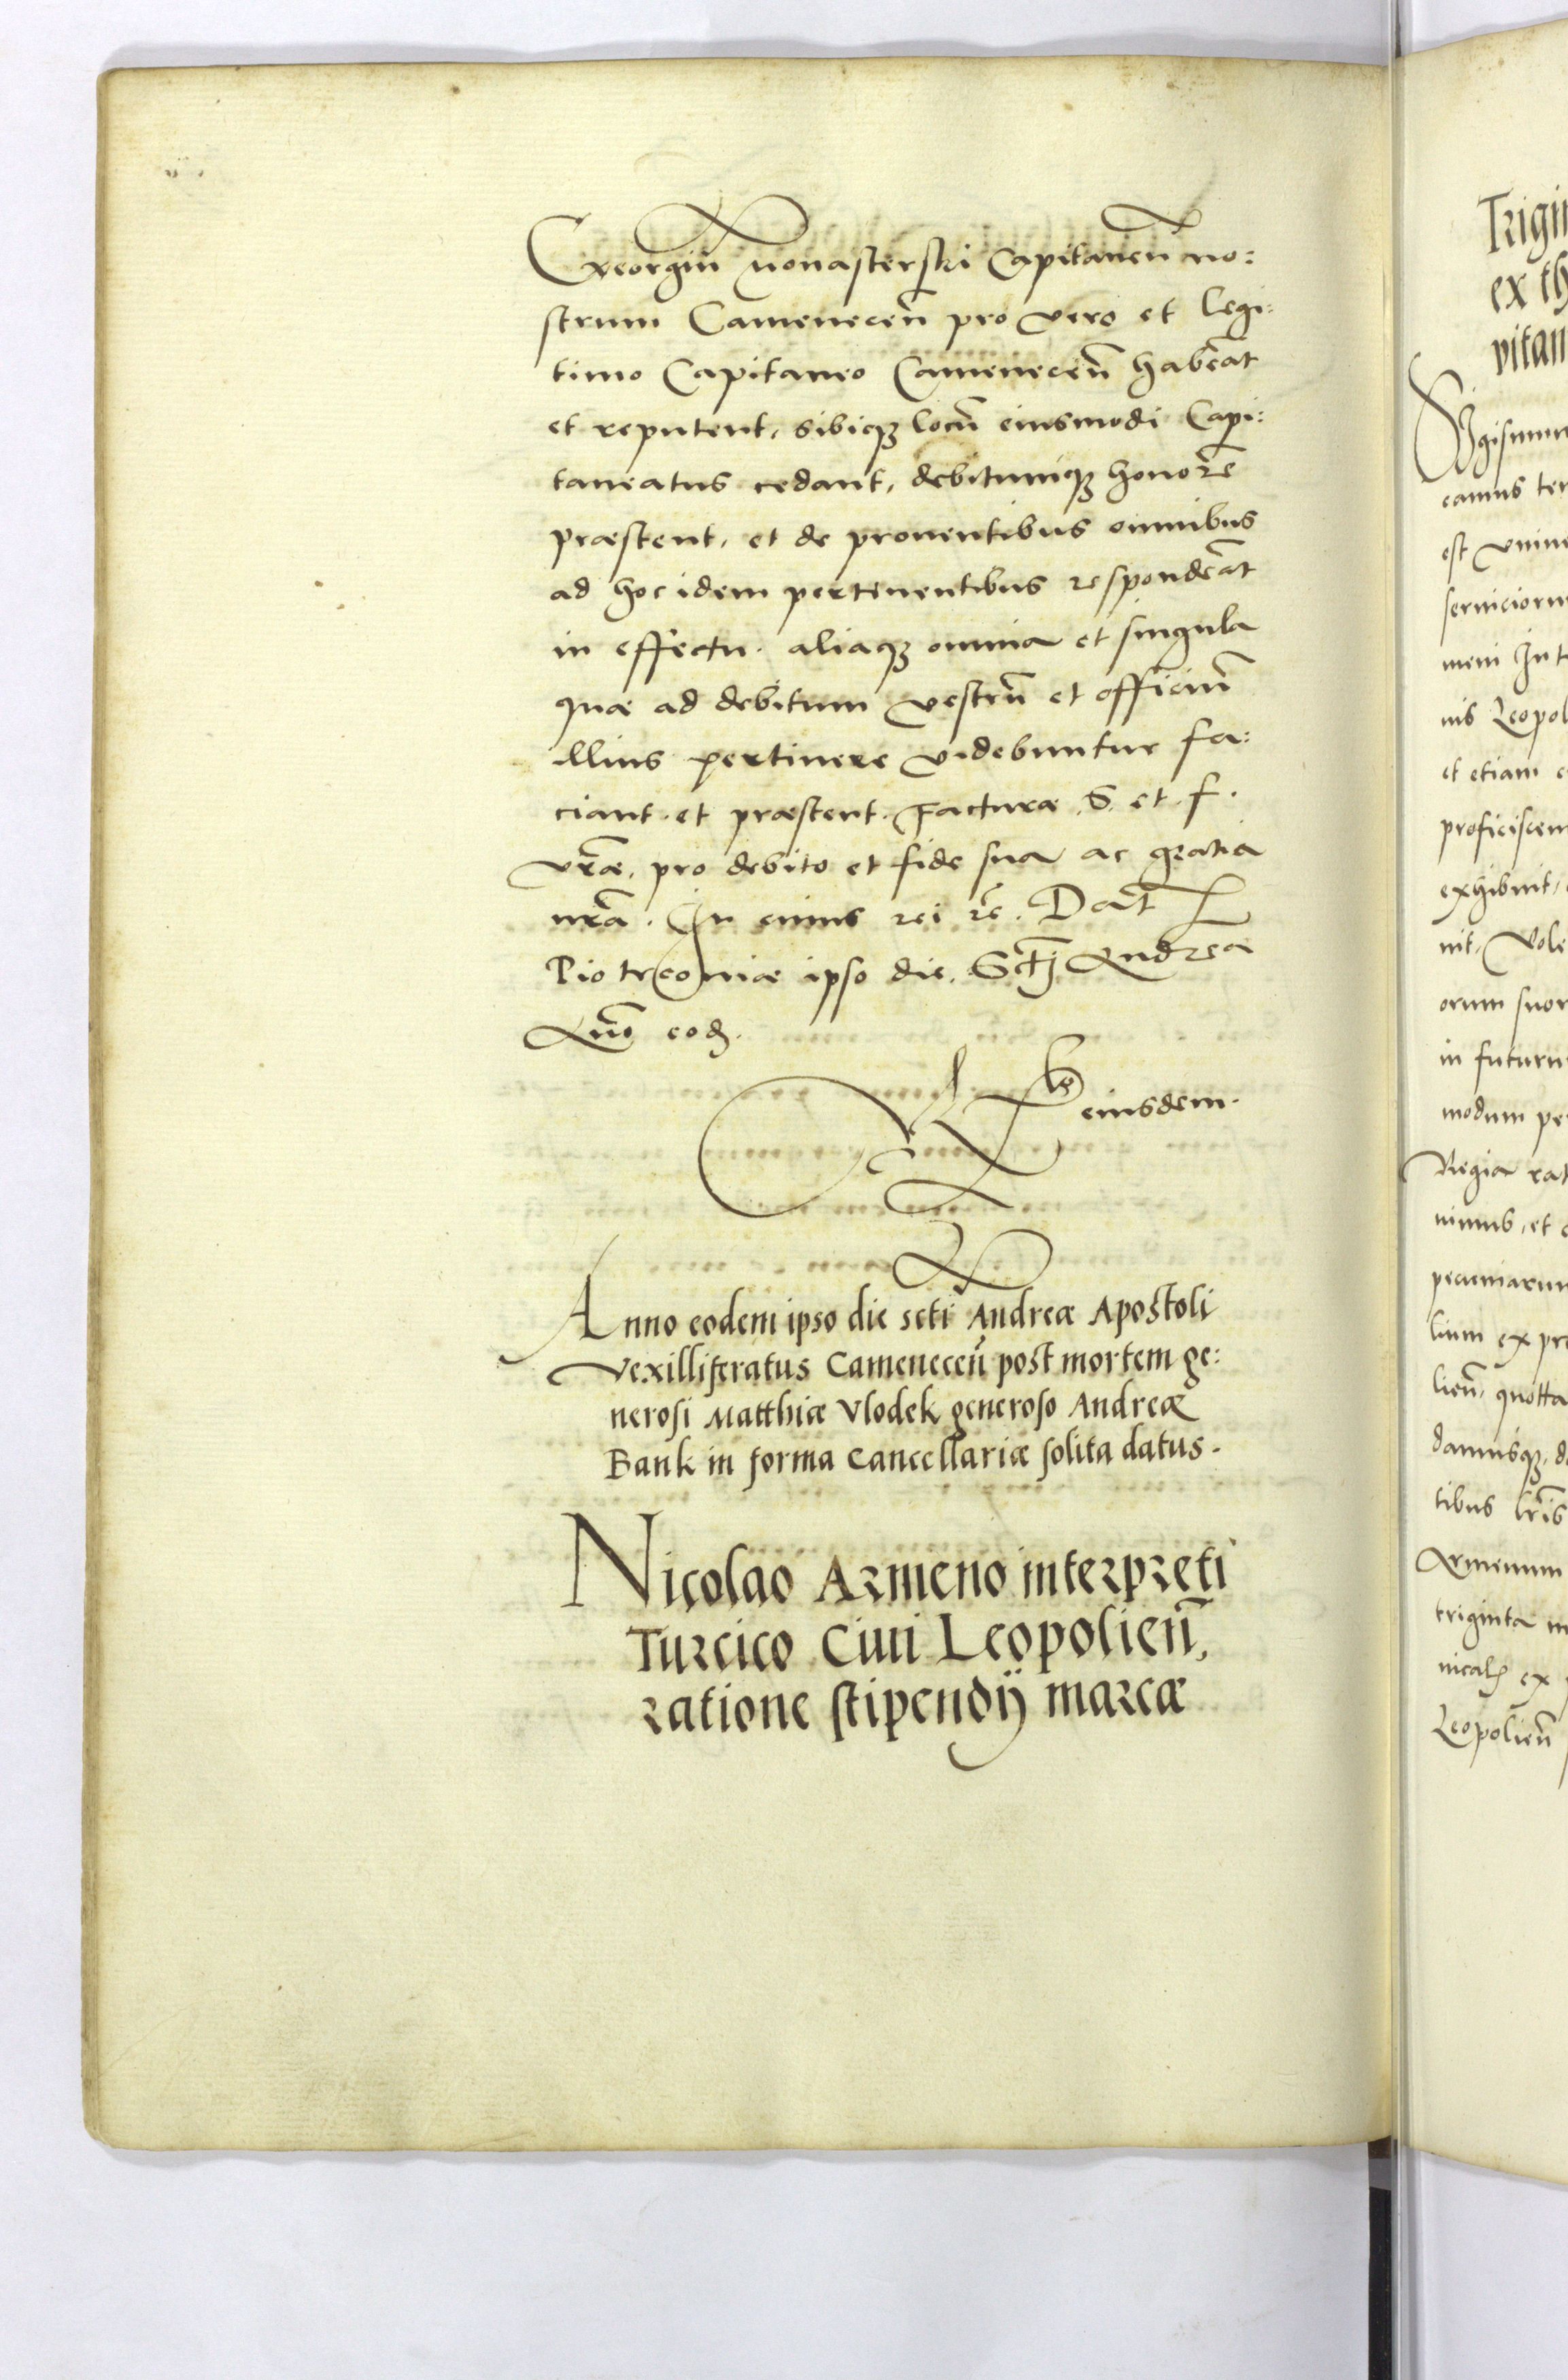 Georgiū Monasterski Capitaneū no:
strum Camenecen̄ pro vero et legi:
timo Capitaneo Camenecen̄ habeāt
et reputent, sibiq3 locū eiusmodi Capi:
taneatus cedant, debitumq3 honorē
præstent, et de prouentibus omnibus
ad hoc idem pertinentibus respondeāt
in effectu. aliaq3 omnia et singula
quæ ad debitum vestrū et officiū
illius pertinere videbuntur fa:
ciant. et præstent. Facturæ .S. et .f.
vr̄æ, pro debito et fide sua ac gratia
nr̄a. In cuius rei r̄e. Dat̄
Piotrcouiæ ipso die. Sctj Andreæ
Ann̄o eod.
eiusdem.
Anno eodem ipso die scti Andreæ Apostoli
Vexilliferatus Camenecen̄ post mortem ge:
nerosi Matthiæ Vlodek generoso Andreæ
Bank in forma Cancellariæ solita datus.
Nicolao Armeno interpreti
Turcico Ciui Leopolien̄,
ratione stipendij marcæ
Trigin
ex th
pitan
Sigismun
camus ten
est vniue
seruiciorum
meni Int
nis Leopol
et etiam e
proficiscen
exhibuit,
nit, Vole
orum suor
in futuru
modum pe
Regia rat
nimus, et
pecuniarum
lium ex pr
lien̄, quotta
damusq3, d
tibus lr̄is
Armenum
triginta m
nical ex
Leopolien̄